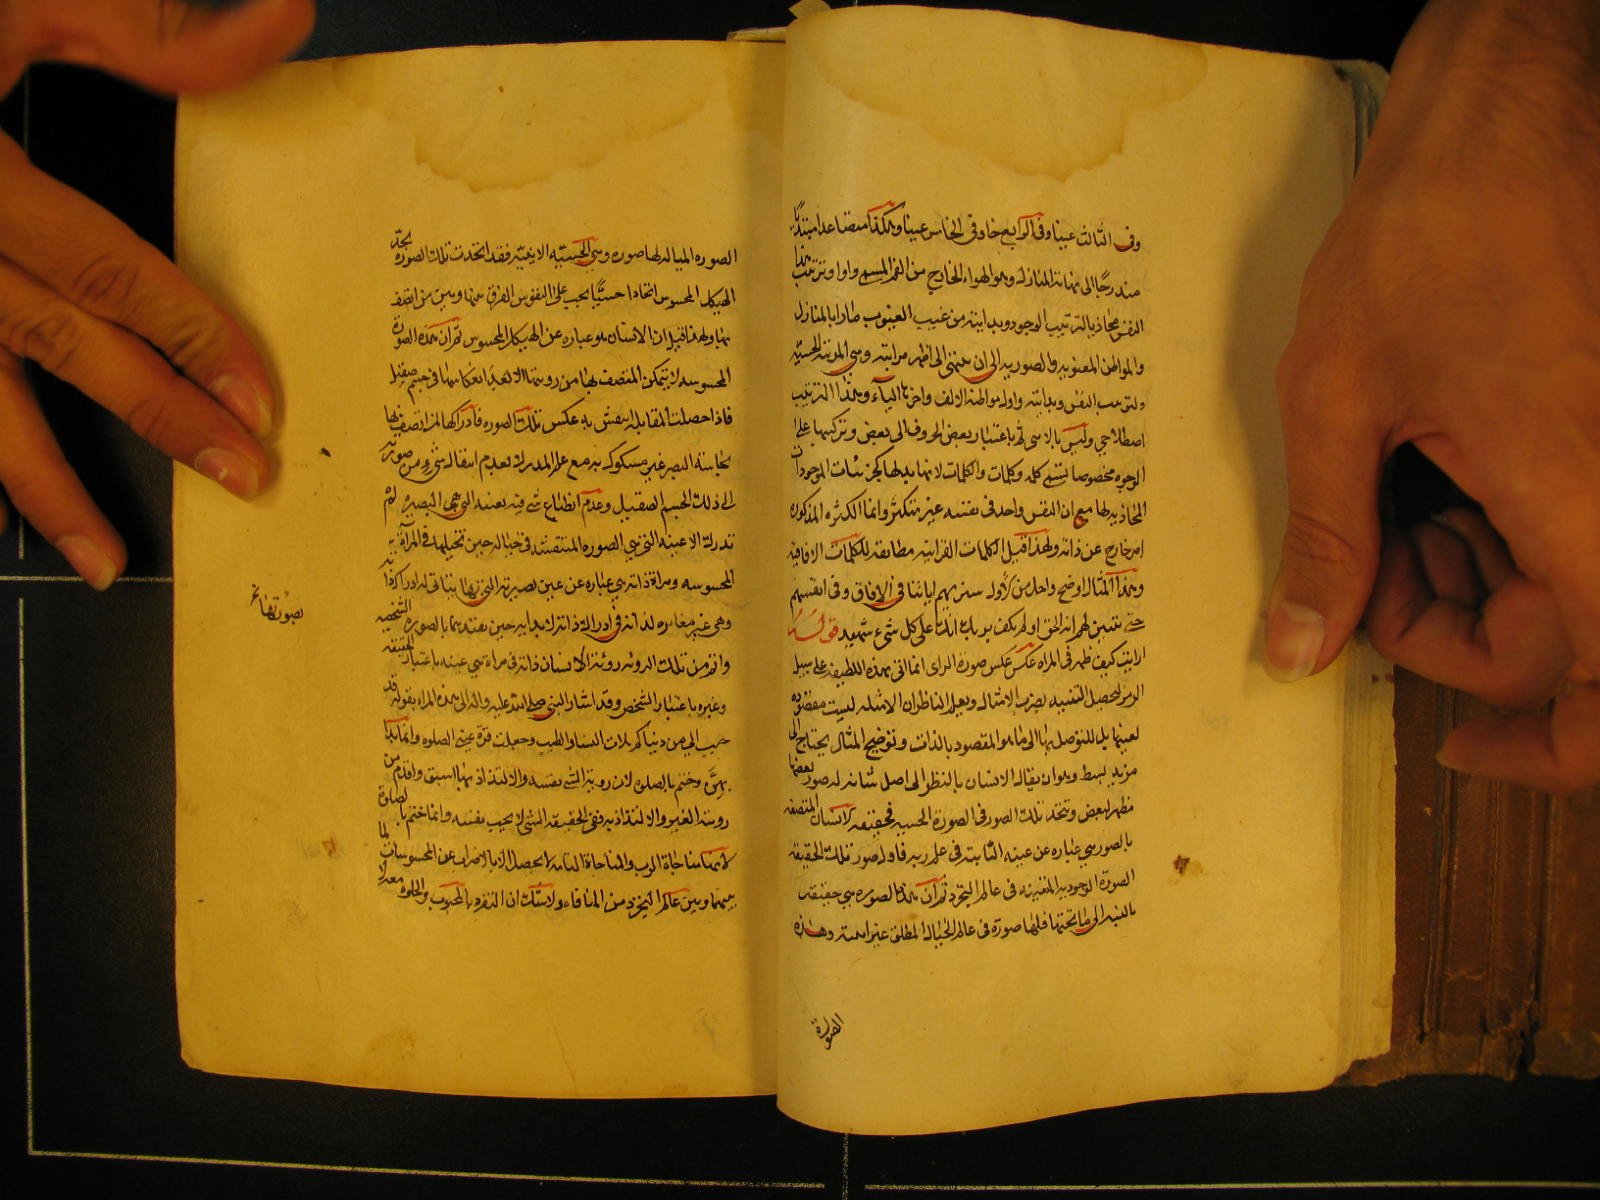 وفى الثالث عينا وفى الرابع خا وفى الخامس غينا وهكذا متصاعدا مبتديًا
متدرجًا الى نهاية المنازل وهو الهواء الخارج من الفم المسمى واوا وترتيب هذا
النفس محاذ بالترتيب الوجود وبدايته من غيب الغيوب مارا بالمنازل
والمواطن المعنويه والصوريه الى ان ينتهى الى اظهر مراتبه وهى المرتبة الحسيّه
وترتيب النفس وبدايته واول مواطنه الالف واخرها الياء وهذا الترتيب
اصطلاحي وليس بالاسى ثم باعتبار بعض الحروف الى بعض وتركيبها على
الوجوه مخصوصا يسمى كلمه وكلمات والكلمات لا نهايه لها كجزئيات الموجودات
المحاذيه لها مع ان النفس واحد فى نفسه غير متكثر وانما الكثره المذكوره
امر خارج عن ذاته ولهذا قيل الكلمات القرآنيه مطابقه للكلمات الافاقيه
وهذا المثال اوضح واحد من الاول سنريهم اياتنا فى الافاق وفى انفسهم
حتى يتبين لهم انه الحق اولم يكف بربك انه على كل شىء شهيد قوله
ارايت كيف ظهر فى المراه عكس عكس صورة الراى انما اتى بهذه اللطيفه على سبيل
الرمز لتحصيل التنبيه بضرب الامثال ويعلم الناظر ان الامثله ليست مقصوده
لعينها بل للتوصل بها الى ما هو المقصود بالذات وتوضيح المثال يحتاج الى
مزيد بسط وهو ان يقال الانسان بالنظر الى اصل شانه له صور بعضها
مظهر لبعض وتتحد تلك الصور فى الصورة الحسيه فحقيقة الانسان المتصفه
بالصور هى عباره عن عينه الثابته فى علم ربه فاول صور تلك الحقيقه
الصورة الوجوديه المتعينه فى عالم التجرد ثم ان هذه الصوره هى حقيقة
بالنسبه الى ما تحتها فلها صورة فى عالم الخيال المطلق غير اينيته وهذه
الصورة
الصوره الخياليه لها صوره وهى الحسيّه الاينيّه فقد اتحدت تلك الصوره بجدّ
الهيكل المحسوس اتحادا حسيًّا يجب على النفوس الفرق بينها وبين من اتصف
بها ولهذا قيل ان الانسان هو عباره عن الهيكل المحسوس ثم ان هذه الصورة
المحسوسه لا يتمكن المتصف بها من رويتها الا بعد انعكاسها فى جسم صقيل
فاذا حصلت المقابله انتقش به عكس تلك الصوره فادراكها لمن اتصف بها
بحاسة البصر غير مشكوك به مع علم المدرك بعدم انتقال شىء من صورته
الى ذلك الجسم الصقيل وعدم انطباع شى فيه بعينه التى هى البصيره لم
تدرك الا عينه التى هى الصوره المنتقشه فى خياله حين تخيلها فى المرآة
المحسوسه ومراة ذاته هى عباره عن عين بصيرته التى بها يتاتى له ادراك ذاته
وهى غير مغايره لذاته فى ادراك ذاته بذاته حين يقيدهما بالصورة الشخصيه
وانور من تلك الرويه روية الانسان ذاته فى مراة هى عينه باعتبار الحقيقه
وغيره باعتبار الشخص وقد اشار النبى صلى الله عليه واله الى هذه المراه بقوله قد
حبب الى من دنياكم ثلاث النساء والطيب وجعلت قرة عينى الصلوه وانما بدا
بهنّ وختم بالصلوه لان روية الشى نفسه والالتذاذ بها اسبق واقدم من
روية الغير والالتذاذ به ففى الحقيقه الشى لا يحب نفسه وانما ختم بالصلوة
لانها مناجاة الرب والمناجاة التامه لا تحصل الا بالاضراب عن المحسوسات لما
بينها وبين عالم التجرد من المنافاه ولا شك ان التفرد بالمحبوب والخلوه معه لا
بصورتها